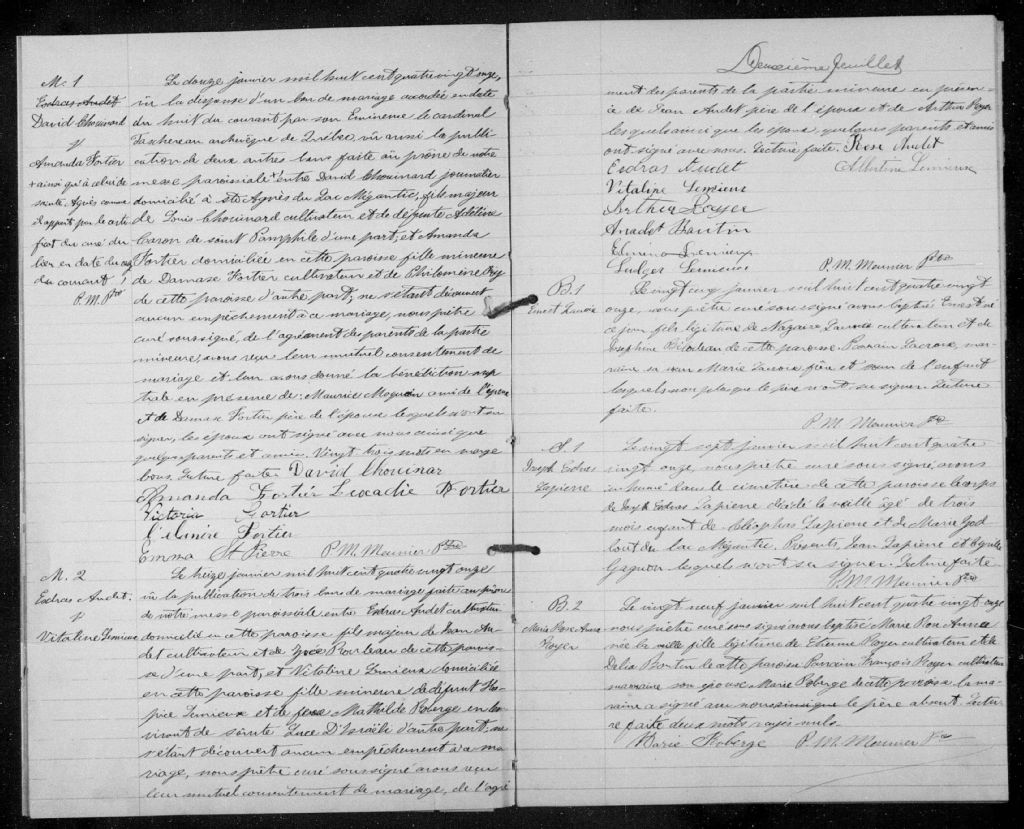 M. 1
Esdras Audet
David Chouinard
&
Amanda Fortier
+ ainsi qu'à celui de
sainte Agnès comme
il appert par le certi
ficat du curé du
lieu en date du
du courant
P.M. Ptre
Le douze janvier mil huit cent quatre vingt onze,
vu la dispense d'un ban de mariage accordée en date
du huit du courant par son Eminence le cardinal
Taschereau archevêque de Québec, vu aussi la publi
cation de deux autres bans faite au prône de notre
messe paroissiale + entre David Chouinard journalier
domicilié à Ste Agnès du Lac Mégantic, fils majeur
de Louis Chouinard cultivateur et de défunte Adeline
Caron de saint Pamphile d'une part, et Amanda
Fortier domiciliée en cette paroisse fille mineure
de Damase Fortier cultivateur et de Philomène Roy
de cette paroisse d'autre part, ne s'étant découvert
aucun empêchement à ce mariage, nous prêtre
curé soussigné, de l'agrément des parents de la partie
mineure, avons reçu leur mutuel consentement de
mariage et leur avons donné la bénédiction nup
tiale en présence de Maurice ami de l'époux
et de Damase Fortier père de l'épouse lesquels n'ont su
signer, les époux ont signé avec nous ainsi que
quelques parents et amis. Vingt trois mots en marge
bons. Lecture faite David Chouinar
Amanda Fortier Leocadie Fortier
Victoria Fortier
Fortier
Emma St Pierre P.M. Meunier Ptre
M. 2
Esdras Audet
&
Vitaline Lemieux
Le treize janvier mil huit cent quatre vingt onze
vu la publication de trois bans de mariage faite au prône
de notre messe paroissiale entre Esdras Audet cultivateur
domicilié en cette paroisse fils majeur de Jean Au
det cultivateur et de Rouleau de cette parois
se d'une part, et Vitaline Lemieux domiciliée
en cette paroisse fille mineure de défunt Hos
pice Lemieux et de feue Mathilde Roberge en leur
vivant de sainte D'Israëli d'autre part, ne
s'étant découvert aucun empêchement à ce ma
riage, nous prêtre curé soussigné avons reçu
leur mutuel consentement de mariage, de l'agré
Deuxième feuillet
ment des parents de la partie mineure en présen
ce de Jean Audet père de l'époux et de Arthur Royer
lesquels ainsi que les époux, quelques parents et amis
ont signé avec nous. Lecture faite. Rose Audet
Esdras Audet Albertine Lemieux
Vitaline Lemieux
Arthur Royer
Audet
Lemieux
Ludger Lemieux P.M. Meunier Ptre
B. 1
Ernest Lacroix
Le vingt cinq janvier mil huit cent quatre vingt
onze, nous prêtre curé soussigné avons baptisé Ernest né
ce jour fils légitime de Nazaire Lacroix cultivateur et de
Josephine Bilodeau de cette paroisse. Parrain Lacroix, mar
raine Marie Lacroix frère et sœur de l'enfant
lesquels non plus que le père n'ont su signer. Lecture
faite.
P.M. Meunier Ptre
S. 1
Joseph Esdras
Lapierre
Le vingt sept janvier mil huit cent quatre
vingt onze, nous prêtre curé soussigné, avons
inhumé dans le cimetière de cette paroisse le corps
de Joseph Esdras Lapierre décédé la veille âgé de trois
mois enfant de Cléophas Lapierre et de Marie God
bout du lac Mégantic. Présents Jean Lapierre et
Gagnon lesquels n'ont su signer. Lecture faite
P.M. Meunier Ptre
B. 2
Marie Rose Anna
Royer
Le vingt neuf janvier mil huit cent quatre vingt onze
nous prêtre curé soussigné avons baptisé Marie Rose Anna
née la veille fille légitime de Etienne Royer cultivateur et de
Delia de cette paroisse. Parrain François Royer cultivateur
marraine son épouse Marie Roberge de cette paroisse la mar
raine a signé avec nous ainsi que le père absent. Lectu
re faite deux mots rayés nuls.
Marie Roberge P.M. Meunier Ptre